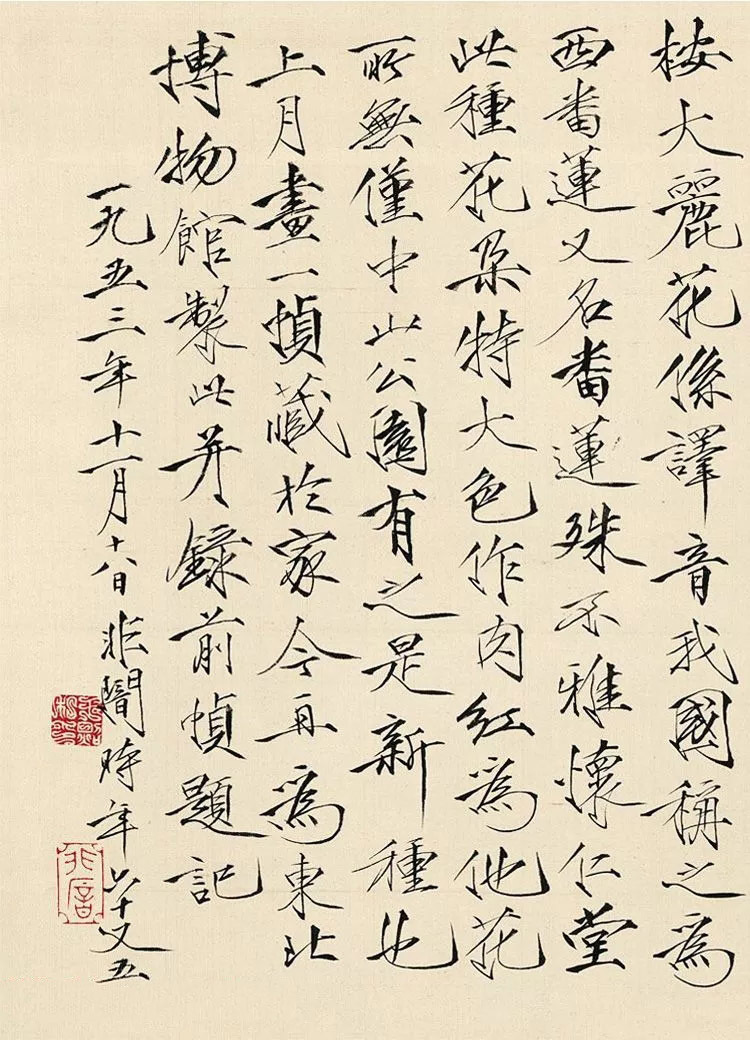 按大麗花係譯音我國稱之為
西番蓮又名番蓮殊不雅懷仁堂
此種花朵特大色作肉紅為他花
所無僅中山公園有之是新種也
上月畫一幀藏於家今再為東北
博物館製此并錄前幀題記
一九五三年十一月十八日非闇時年六十又五
非闇